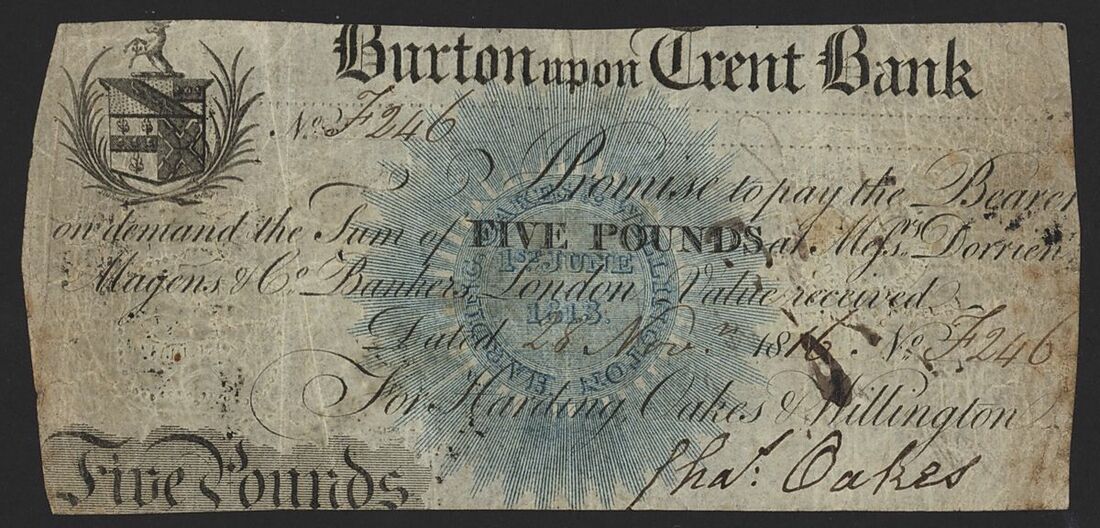 Burton upon Trent Bank
No. F246
Promise to pay the Bearer
on demand the Sum of FIVE POUNDS at Messrs Dorrien
Magens & Co. Bankers London Value received
Dated 28 Novr. 1816. No. F246
For Harding, Oakes & Willington
Thas. Oakes
Five Pounds
HARDING OAKES & WILLINGTON
1ST JUNE
1813.